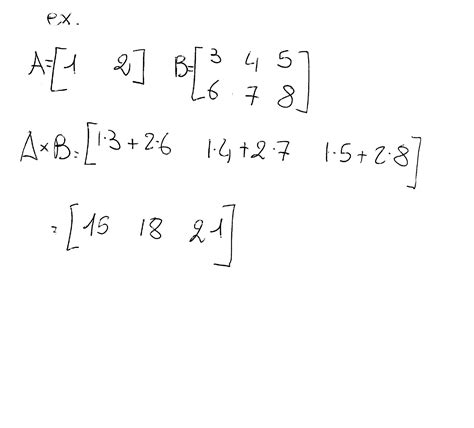 ex.
A=[1 2] B=[3 4 5
6 7 8]
A×B=[1·3+2·6 1·4+2·7 1·5+2·8]
=[15 18 21]